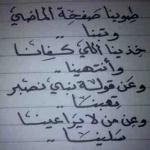 طوينا صفحة الماضي
وتبنا..
خذينا اللي كفانا
وأنتهينا..
وعن قولة نبي نصبر
تعبنا..
وعن من لا يراعينا
سلينا..